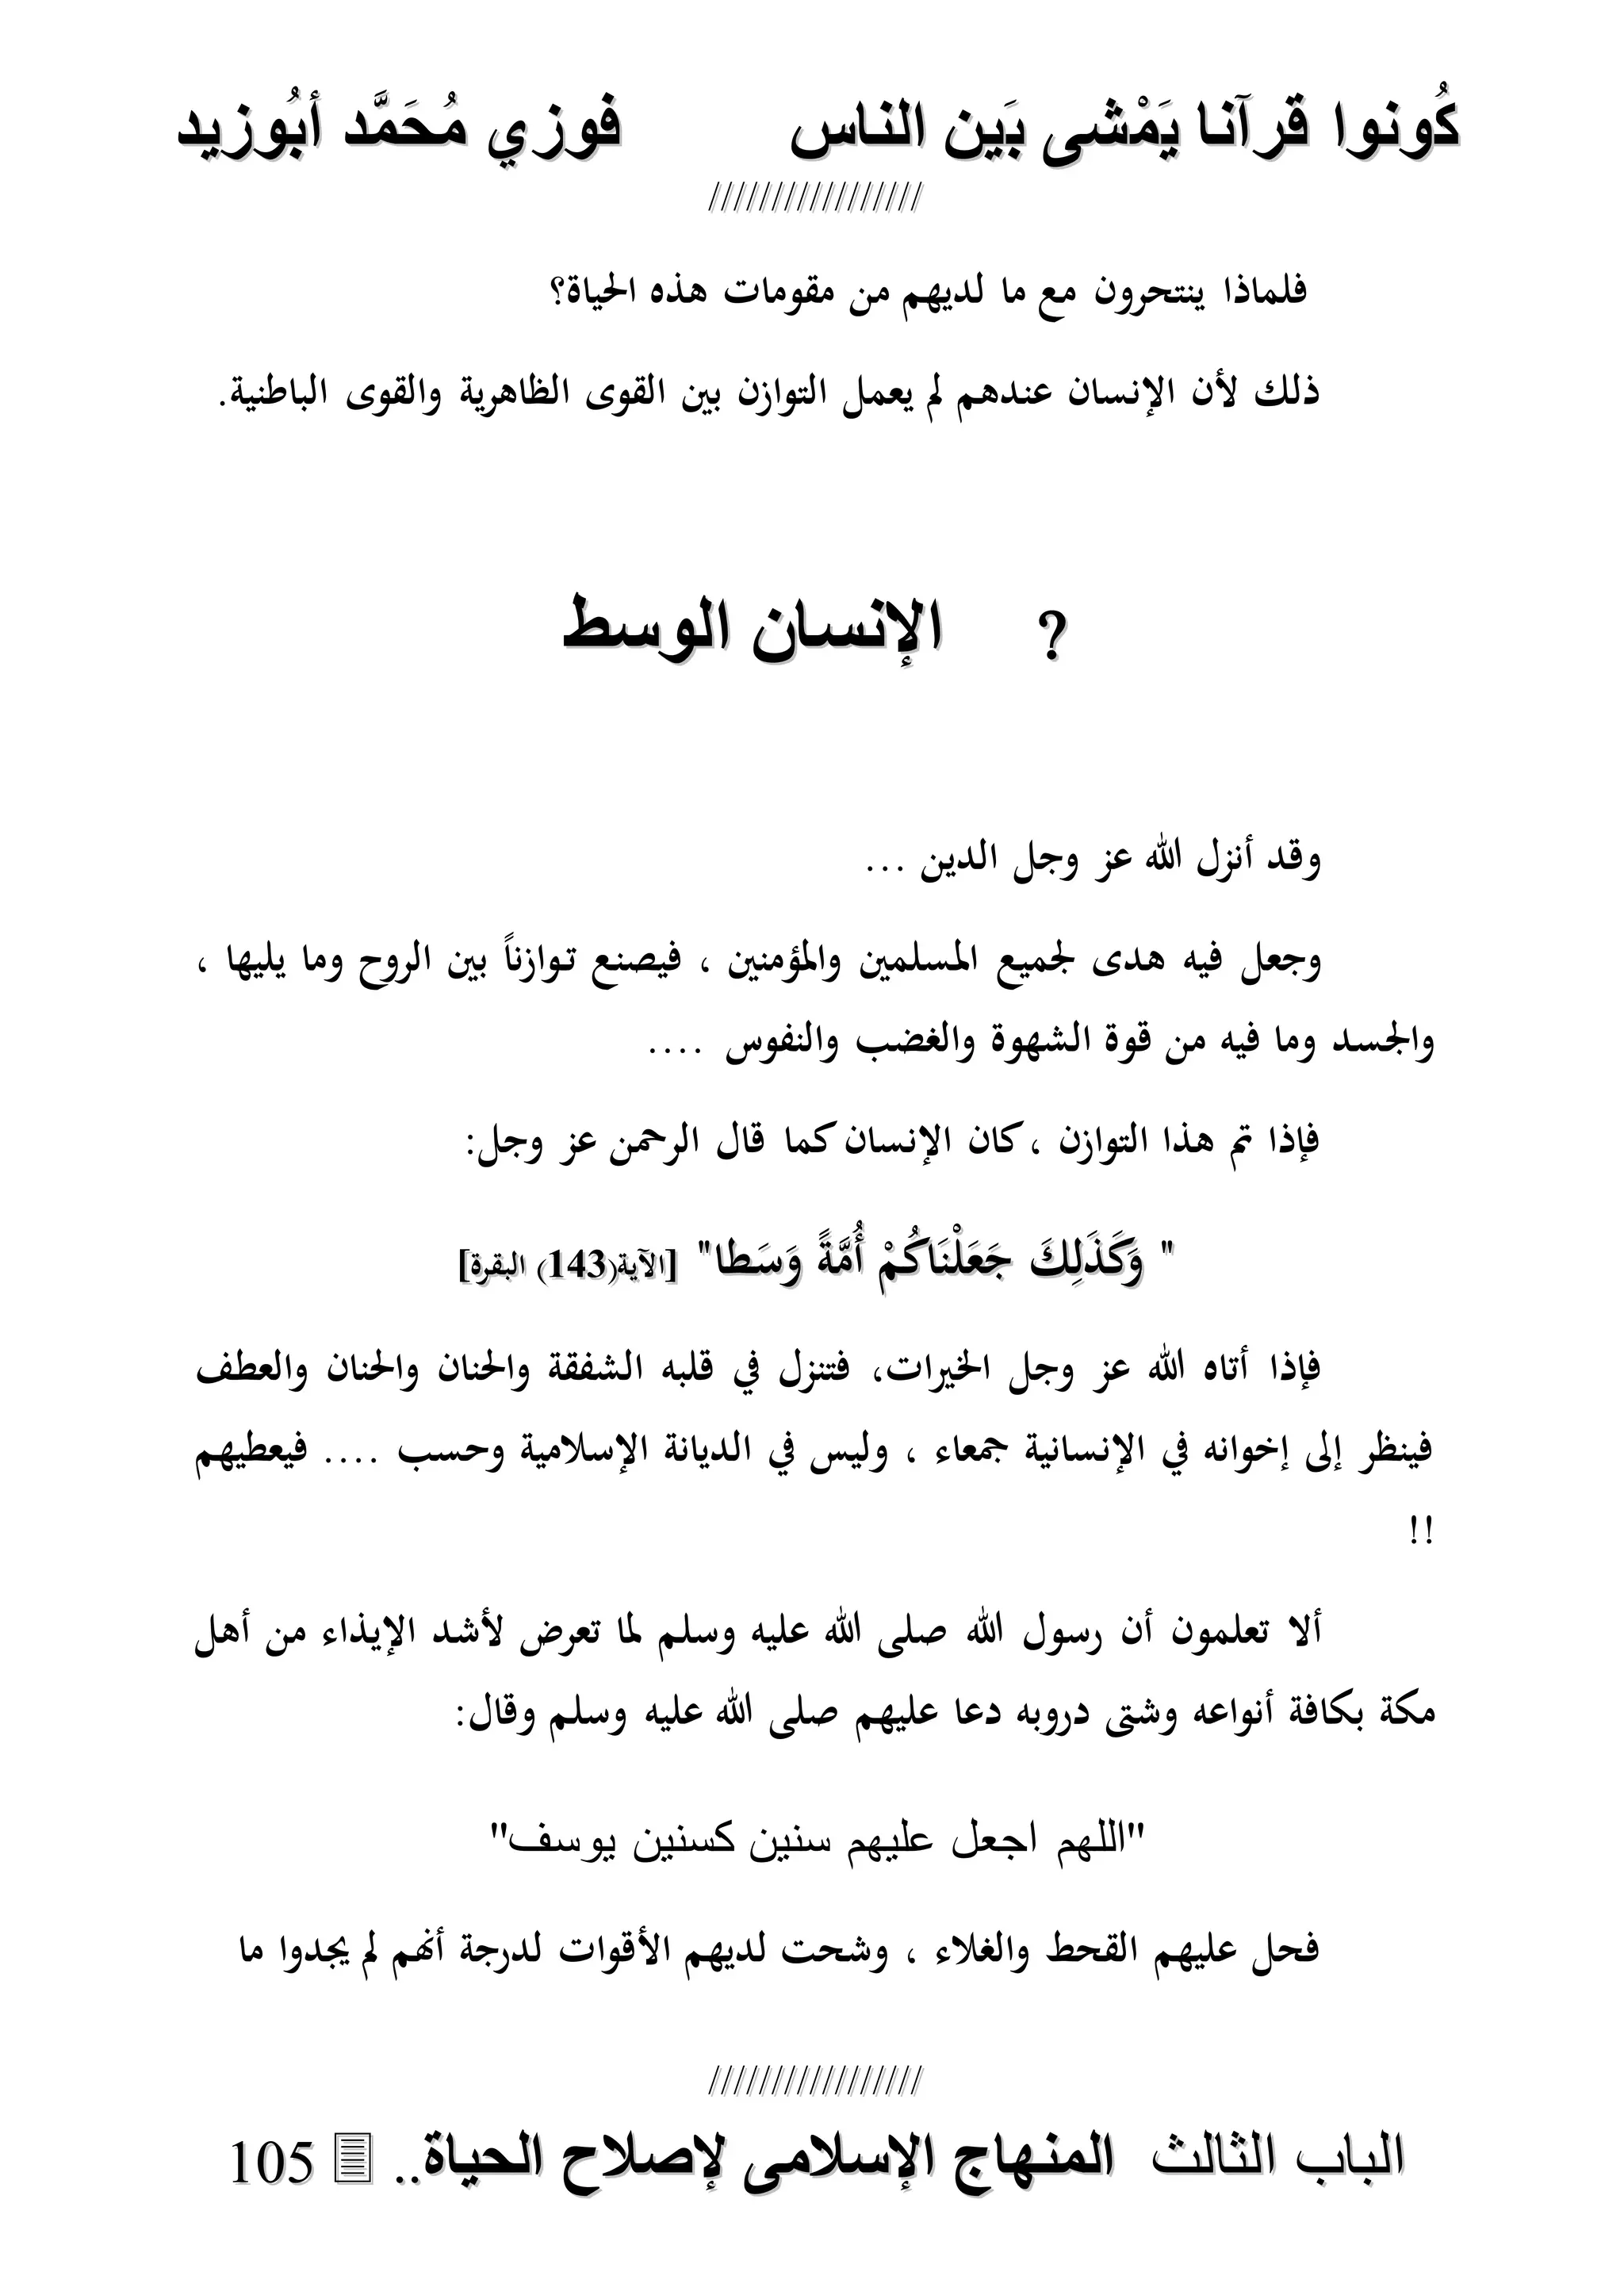 كُونوا قرآنا يَمْشى بَين الناس فوزي مُحَمَّد أبُوزيد
/////////////////
فلماذا ينتحرون مع ما لديهم من مقومات هذه الحياة؟
ذلك لأن الإنسان عندهم لم يعمل التوازن بين القوى الظاهرية والقوى الباطنية.
? الإنسان الوسط
وقد أنزل الله عز وجل الدين ...
وجعل فيه هدى لجميع المسلمين والمؤمنين ، فيصنع توازناً بين الروح وما يليها ،
والجسد وما فيه من قوة الشهوة والغضب والنفوس ....
فإذا تم هذا التوازن ، كان الإنسان كما قال الرحمن عز وجل:
" وَكَذَلِكَ جَعَلْنَاكُمْ أُمَّةً وَسَطا" [الآية(143) البقرة]
فإذا أتاه الله عز وجل الخيرات، فتنزل في قلبه الشفقة والحنان والحنان والعطف
فينظر إلى إخوانه في الإنسانية جمعاء ، وليس في الديانة الإسلامية وحسب .... فيعطيهم
!!
ألا تعلمون أن رسول الله صلى الله عليه وسلم لما تعرض لأشد الإيذاء من أهل
مكة بكافة أنواعه وشتى دروبه دعا عليهم صلى الله عليه وسلم وقال:
"اللهم اجعل عليهم سنين كسنين يوسف"
فحل عليهم القحط والغلاء ، وشحت لديهم الأقوات لدرجة أنهم لم يجدوا ما
/////////////////
الباب الثالث المنهاج الإسلامى لإصلاح الحياة.. 105